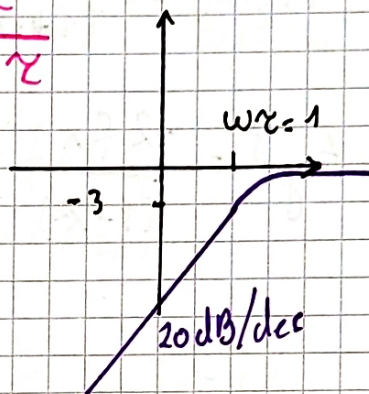 τ
ωτ = 1
-3
20dB/dec